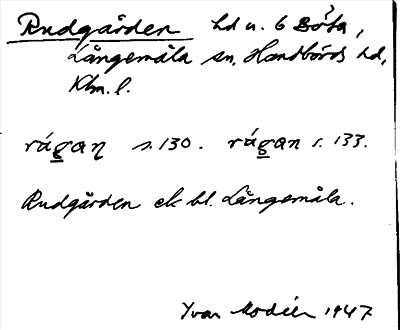 Rudgården hd u. 6 Bôta,
Långemåla sn, Handbörds hd,
Klm. l.
rágan s. 130. rágan s. 133.
Rudgården ek bl. Långemåla.
Yvar Modéer 1947